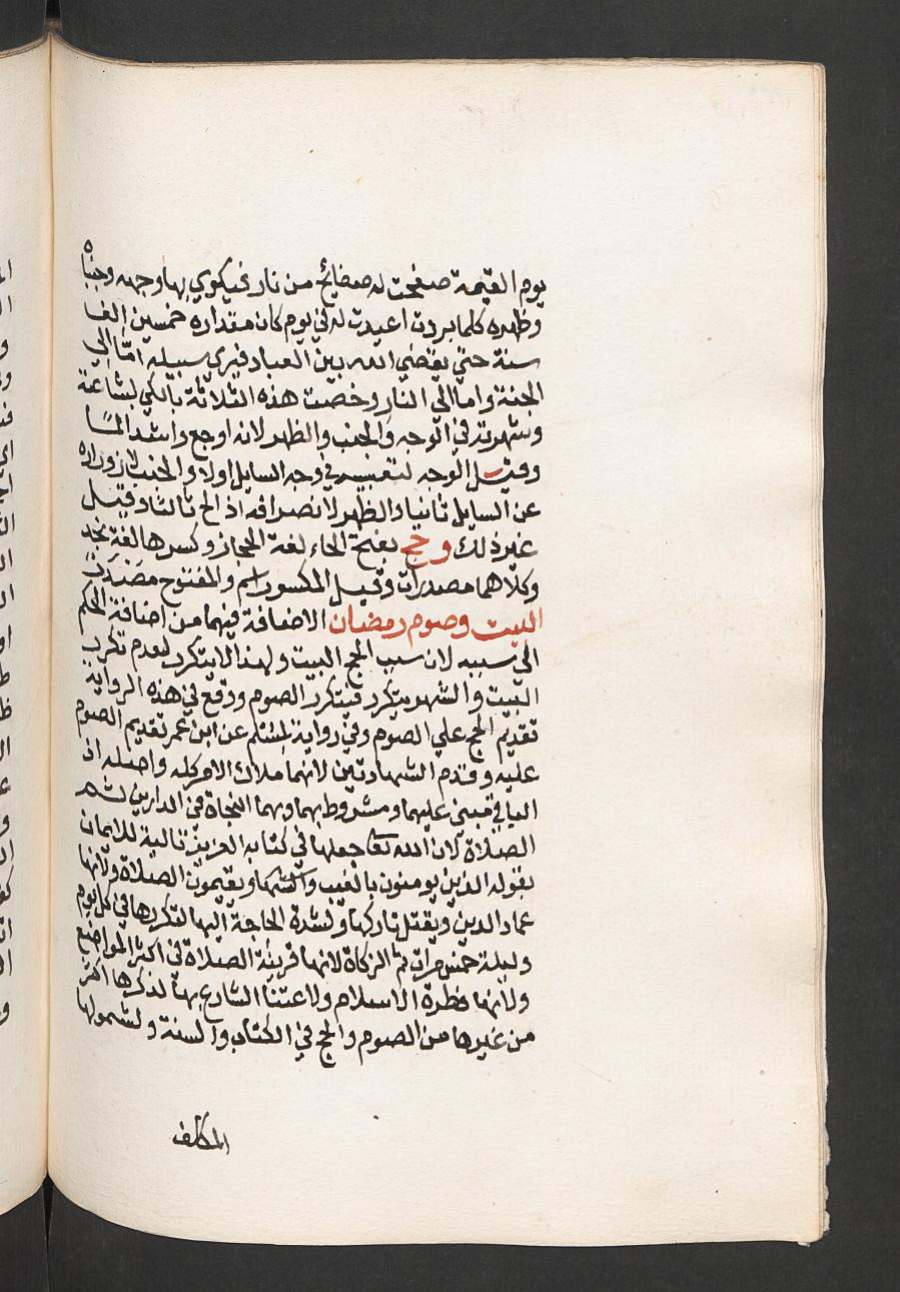 يوم القيمة صفحت له صفايح من نار فيكوي بها وجهه وجنباه
وظهره كلما بردت اعيدت له في يوم كان مقداره خمسين الف
سنة حتي يقضي الله بين العباد فيري سبيله امّا الي
الجنة واما الي النار وخصت هذه الثلاثة بالكي لبشاعته
وشهرته في الوجه والجنب والظهر لانه اوجع واشد المًا
وقيل الوجه لتعبيسه في وجه السايل اولا والجنب لازوراره
عن السايل ثانيا والظهر لانصرافه اذا الح ثالثا وقيل
غير ذلك وحج بفتح الحاء لغة الحجاز وكسرها لغة نجد
وكلاهما مصدران وقيل المكسور اسم والمفتوح مصدر
البيت وصوم رمضان الاضافة فيهما من اضافة الحكم
الي سببه لان سبب الحج البيت ولهذا لا يتكرر لعدم تكرر
البيت والشهر يتكرر فيتكرر الصوم ووقع في هذه الرواية
تقديم الحج علي الصوم وفي رواية لمسلم عن ابن عمر تقديم الصوم
عليه وقدم الشهادتين لانهما ملاك الامر كله واصله اذ
الباقي مبني عليهما ومشروط بهما وبهما النجاة في الدارين ثم
الصلاة لان الله تعا جعلها في كتابه العزيز تالية للايمان
بقوله الذين يومنون بالغيب ويقيمون الصلاة ولانها
عماد الدين ويقتل تاركها ولشدة الحاجة اليها لتكررها في كل يوم
وليلة خمس مرات ثم الزكاة لانها قرينة الصلاة في اكثر المواضع
ولانها قنطرة الاسلام ولاعتنا الشارع بها لذكرها اكثر
من غيرها من الصوم والحج في الكتاب والسنة ولشمولها
المكلف